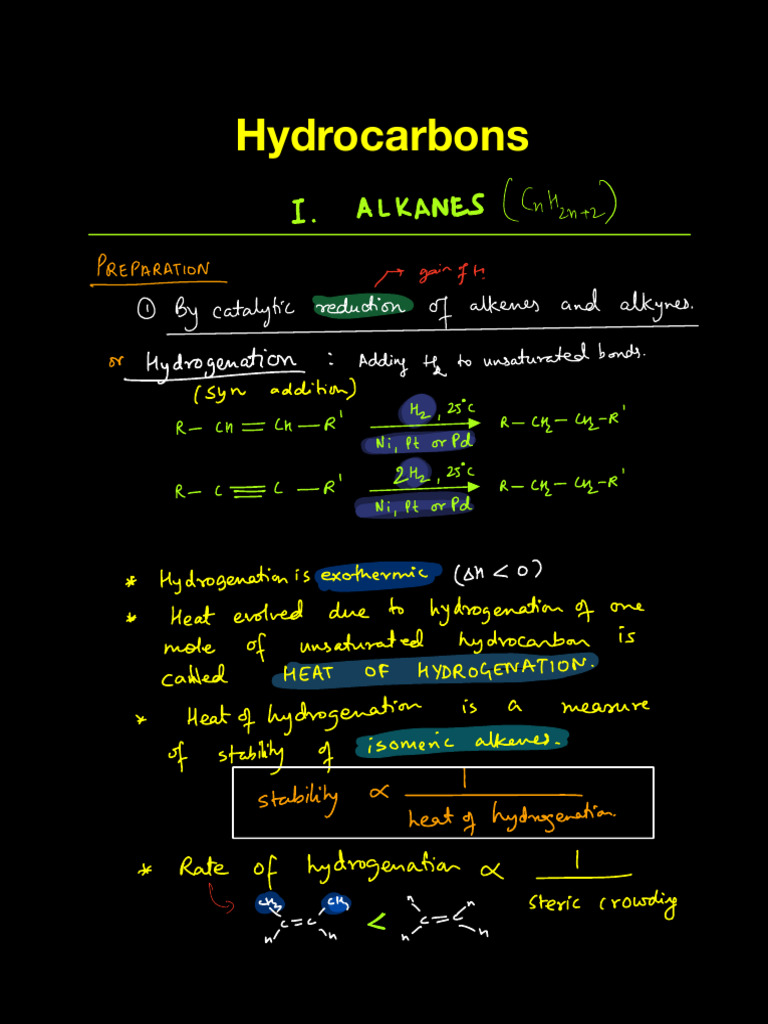 Hydrocarbons
I. ALKANES (CnH2n+2)
PREPARATION
→ gain of H.
① By catalytic reduction of alkenes and alkynes.
or Hydrogenation : Adding H2 to unsaturated bonds.
(Syn addition)
R — CH = CH — R' H2, 25°C Ni, Pt or Pd → R — CH2 — CH2 — R'
R — C ≡ C — R' 2H2, 25°C Ni, Pt or Pd → R — CH2 — CH2 — R'
* Hydrogenation is exothermic (ΔH < 0)
* Heat evolved due to hydrogenation of one
mole of unsaturated hydrocarbon is
called HEAT OF HYDROGENATION.
* Heat of hydrogenation is a measure
of stability of isomeric alkenes.
stability ∝ 1 / heat of hydrogenation.
* Rate of hydrogenation ∝ 1 / steric crowding
CH3 CH3 H H
C = C < C = C
H H H H